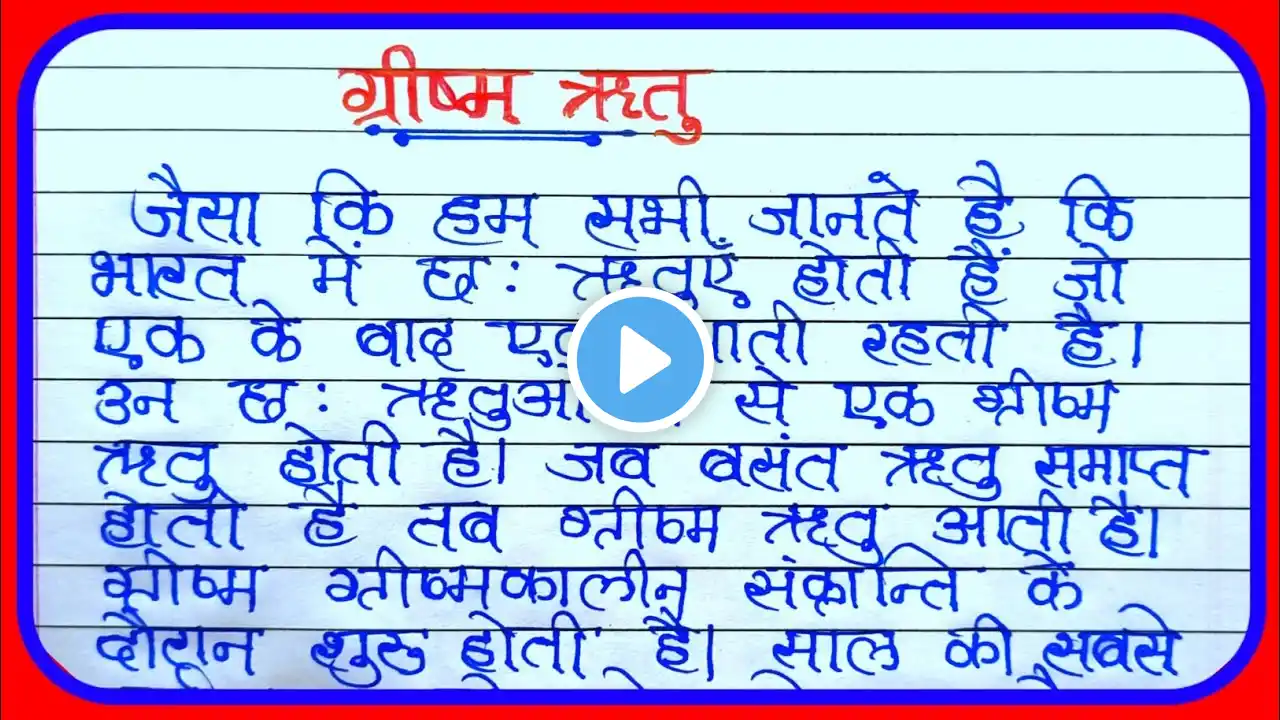 ग्रीष्म ऋतु
जैसा कि हम सभी जानते है कि
भारत में छः ऋतुएँ होती हैं जो
एक के बाद रहती है।
उन छः से एक ग्रीष्म
ऋतु होती है। जब बसंत ऋतु समाप्त
होती है तब ग्रीष्म ऋतु आती है।
ग्रीष्म ग्रीष्मकालीन संक्रान्ति के
दौरान शुरु होती है। साल की सबसे